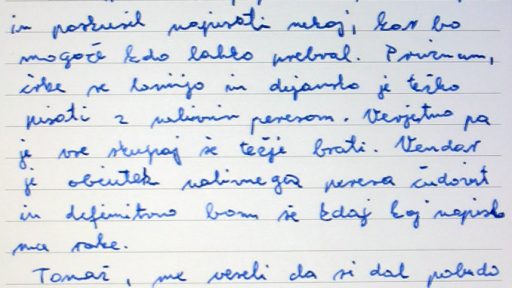 in poskusil napisati nekaj, kar bo
mogoče kdo lahko prebral. Priznam,
črke se lomijo in dejansko je težko
pisati z nalivnim peresom. Verjetno pa
je vse skupaj še težje brati. Vendar
je občutek nalivnega peresa čudovit
in definitivno bom še kdaj kaj napisal
na roke.
Tomaž, me veseli da si dal pobudo